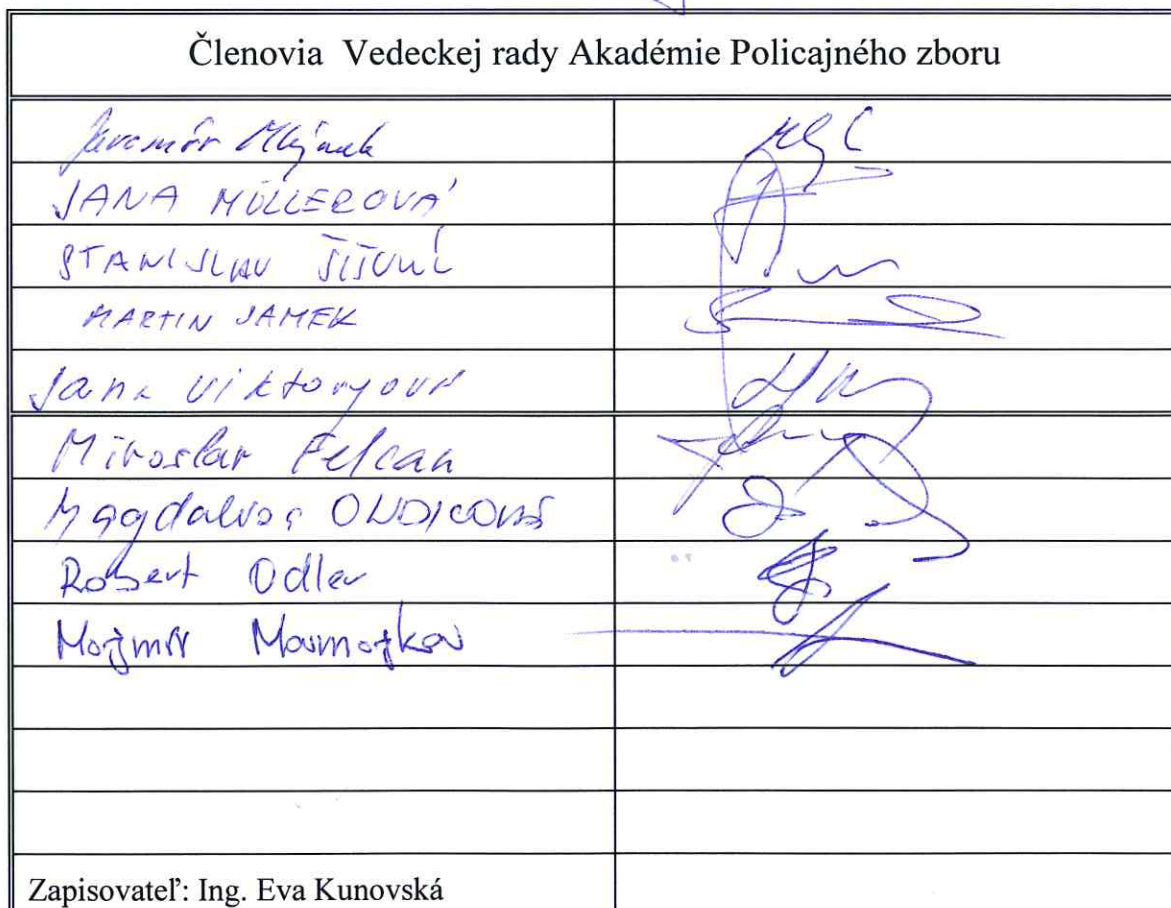 Členovia Vedeckej rady Akadémie Policajného zboru
Jaromír Mlýnek
JANA MÜLLEROVÁ
STANISLAV ŠIŠULÍ
MARTIN JAMEK
Jana Viktoryová
Miroslav Felcan
Magdaléna ONDICOVÁ
Robert Odler
Mojmír Mamojka
Zapisovateľ: Ing. Eva Kunovská